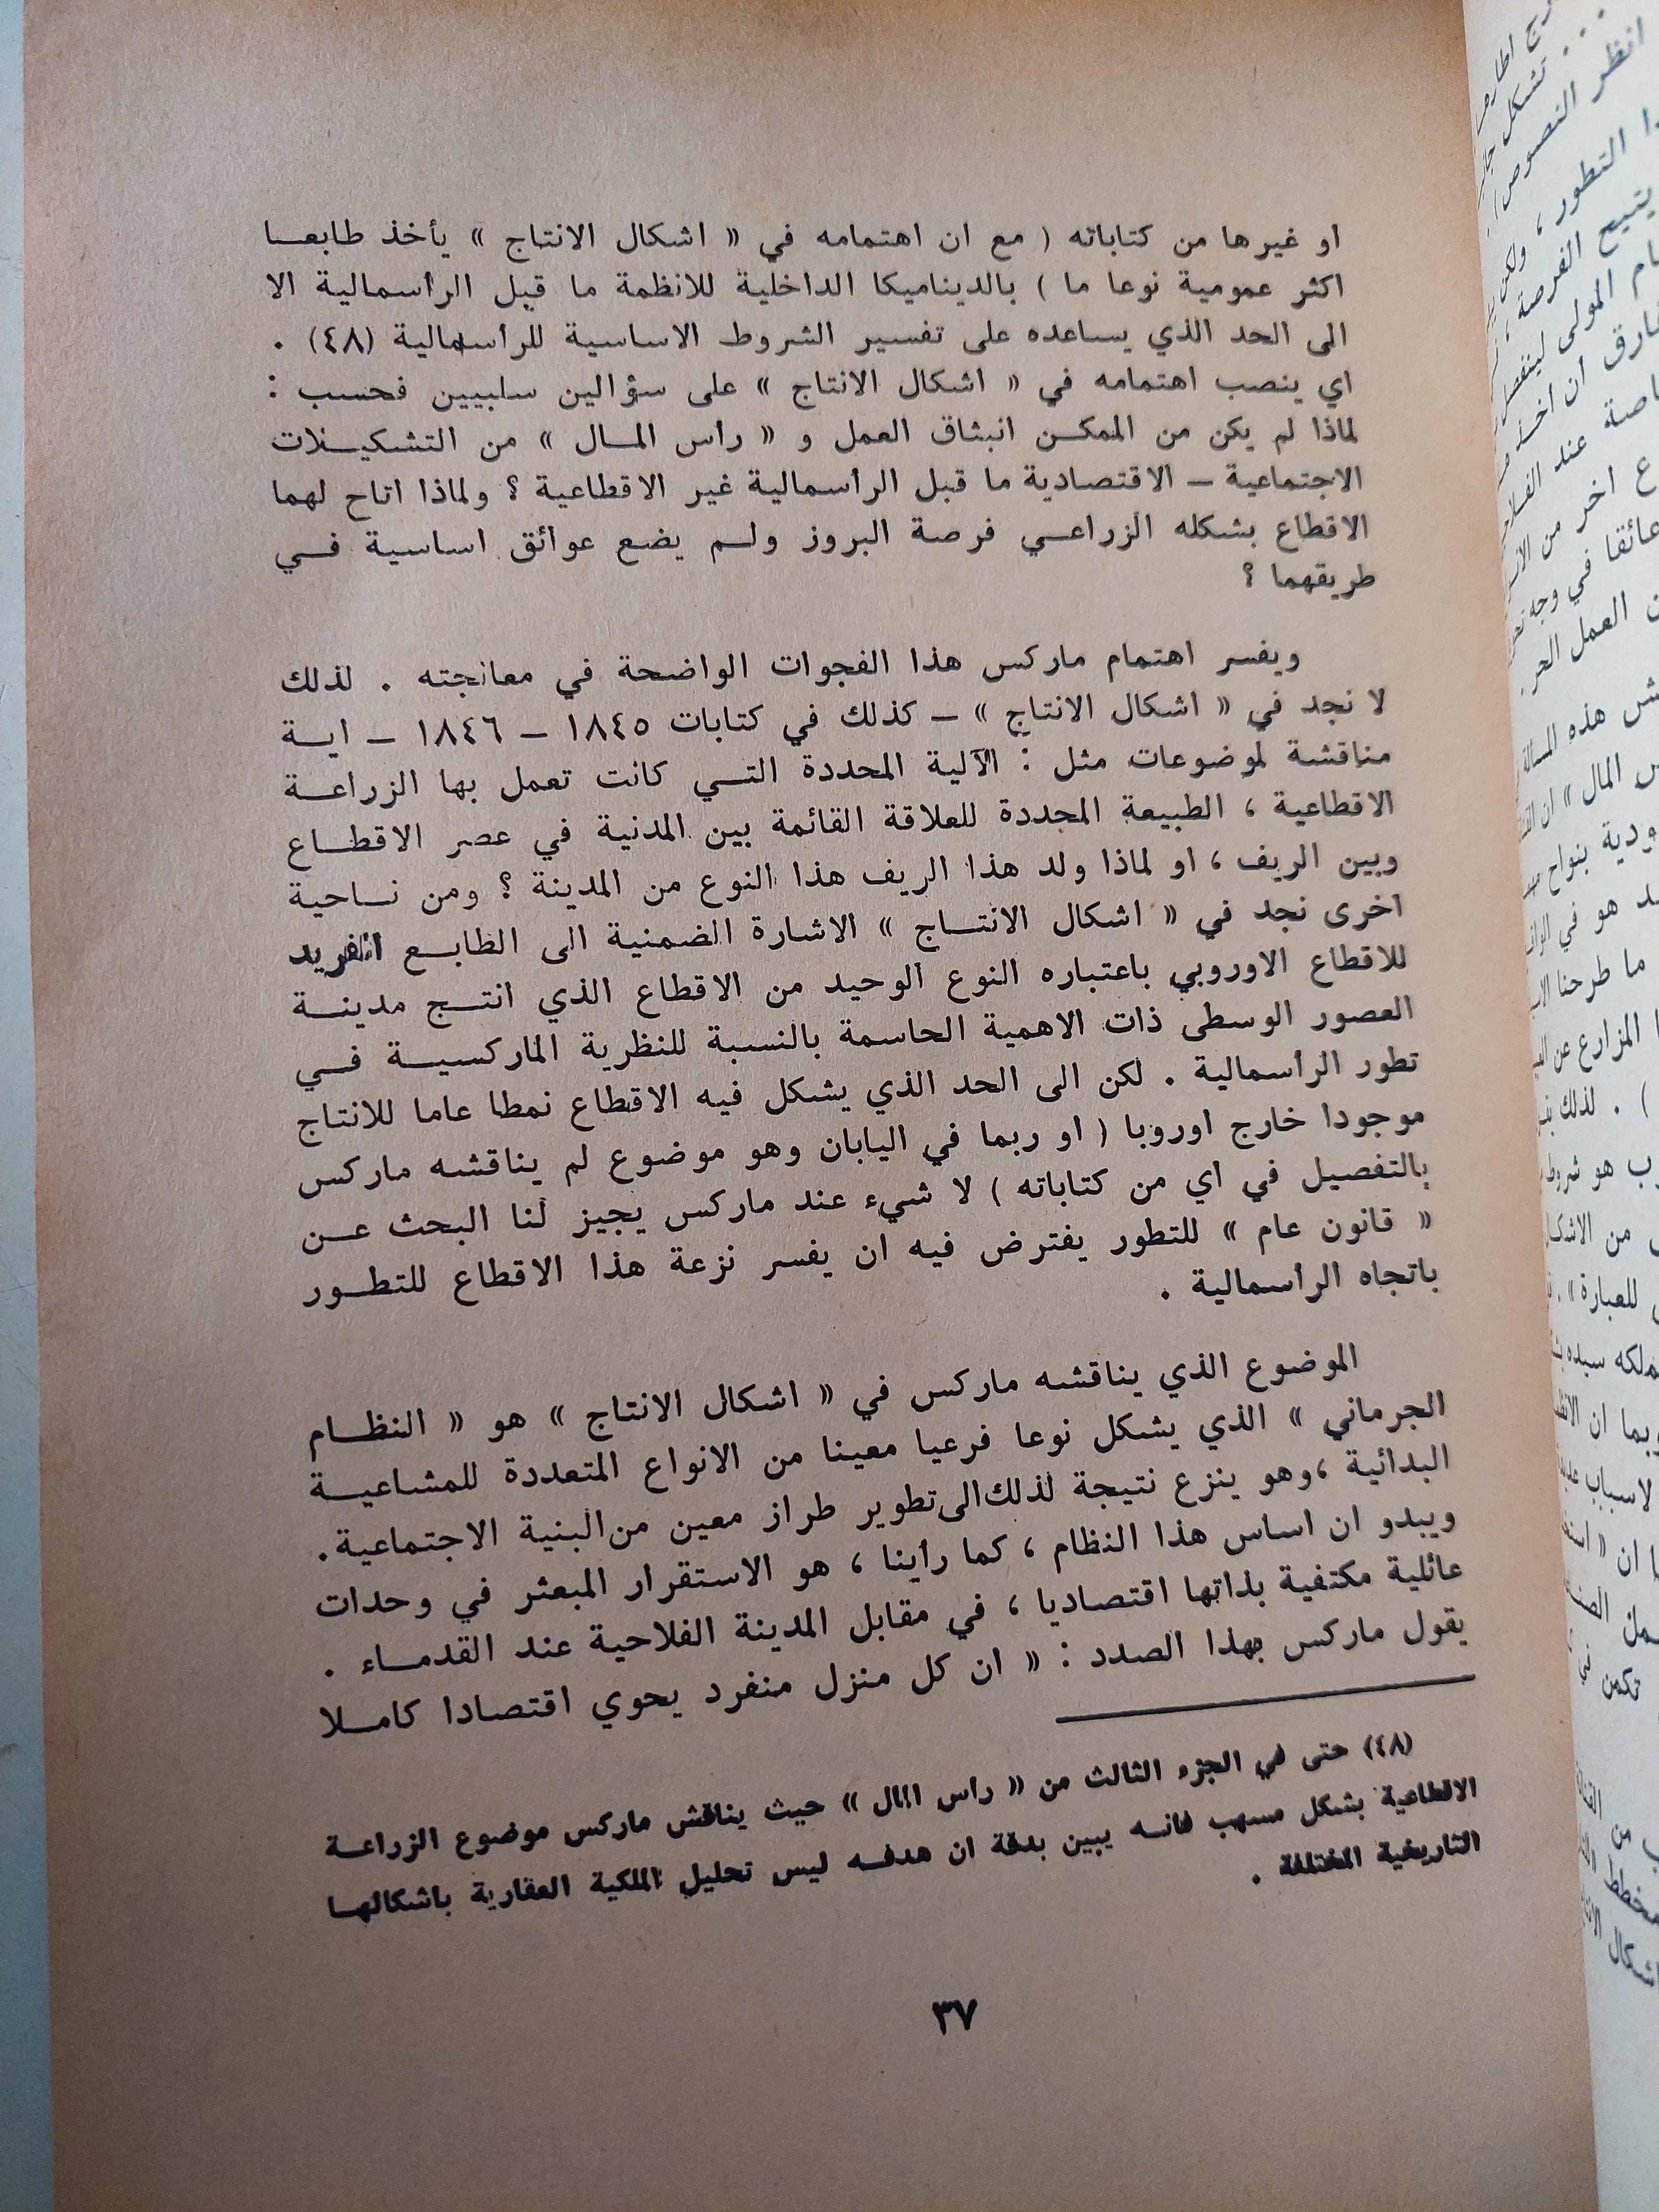 او غيرها من كتاباته ( مع ان اهتمامه في « اشكال الانتاج » يأخذ طابعـا
اكثر عمومية نوعا ما ) بالديناميكا الداخلية للانظمة ما قبل الرأسمالية الا
الى الحد الذي يساعده على تفسير الشروط الاساسية للرأسمالية (٤٨) .
اي ينصب اهتمامه في « اشكال الانتاج » على سؤالين سلبيين فحسب :
لماذا لم يكن من الممكـن انبثاق العمل و « رأس المـال » من التشكيـلات
الاجتماعية ــ الاقتصادية ما قبل الرأسمالية غير الاقطاعية ؟ ولماذا اتاح لهما
الاقطاع بشكله الزراعـي فرصة البروز ولـم يضع عوائق اساسية فـي
طريقهما ؟
ويفسر اهتمام ماركس هذا الفجوات الواضحة في معالجته . لذلك
لا نجد في « اشكال الانتاج » ــ كذلك في كتابات ١٨٤٥ ــ ١٨٤٦ ــ ايـة
مناقشة لموضوعات مثل : الآلية المحددة التـي كانت تعمل بها الزراعـة
الاقطاعية ، الطبيعة المحددة للعلاقة القائمة بين المدنية في عصر الاقطـاع
وبين الريف ، او لماذا ولد هذا الريف هذا النوع من المدينة ؟ ومن نـاحية
اخرى نجد في « اشكال الانتـاج » الاشارة الضمنية الى الطابـع الفريد
للاقطاع الاوروبي باعتباره النوع الوحيد من الاقطاع الذي انتـج مدينـة
العصور الوسطى ذات الاهمية الحاسمة بالنسبة للنظرية الماركسيـة فـي
تطور الرأسمالية . لكن الى الحد الذي يشكل فيه الاقطاع نمطا عاما للانتاج
موجودا خارج اوروبا ( او ربما في اليابان وهو موضوع لم يناقشه ماركس
بالتفصيل في اي من كتاباته ) لا شيء عند ماركس يجيز لنا البحث عـن
« قانون عام » للتطور يفترض فيه ان يفسر نزعة هذا الاقطاع للتطـور
باتجاه الرأسمالية .
الموضوع الذي يناقشه ماركس في « اشكال الانتاج » هو « النظـام
الجرماني » الذي يشكل نوعا فرعيا معينا من الانواع المتعددة للمشاعيـة
البدائية ،وهو ينزع نتيجة لذلك الى تطوير طراز معين من البنية الاجتماعية.
ويبدو ان اساس هذا النظام ، كما رأينا ، هو الاستقرار المبعثر في وحدات
عائلية مكتفية بذاتها اقتصاديا ، في مقابل المدينة الفلاحية عند القدمـاء .
يقول ماركس بهذا الصدد : « ان كل منزل منفرد يحوي اقتصادا كامـلا
(٤٨) حتى في الجزء الثالث من « رأس المال » حيث يناقش ماركس موضوع الزراعـة
الاقطاعية بشكل مسهب فانـه يبين بدقة ان هدفـه ليس تحليل الملكية العقارية باشكالهـا
التاريخية المختلفة .
٣٧